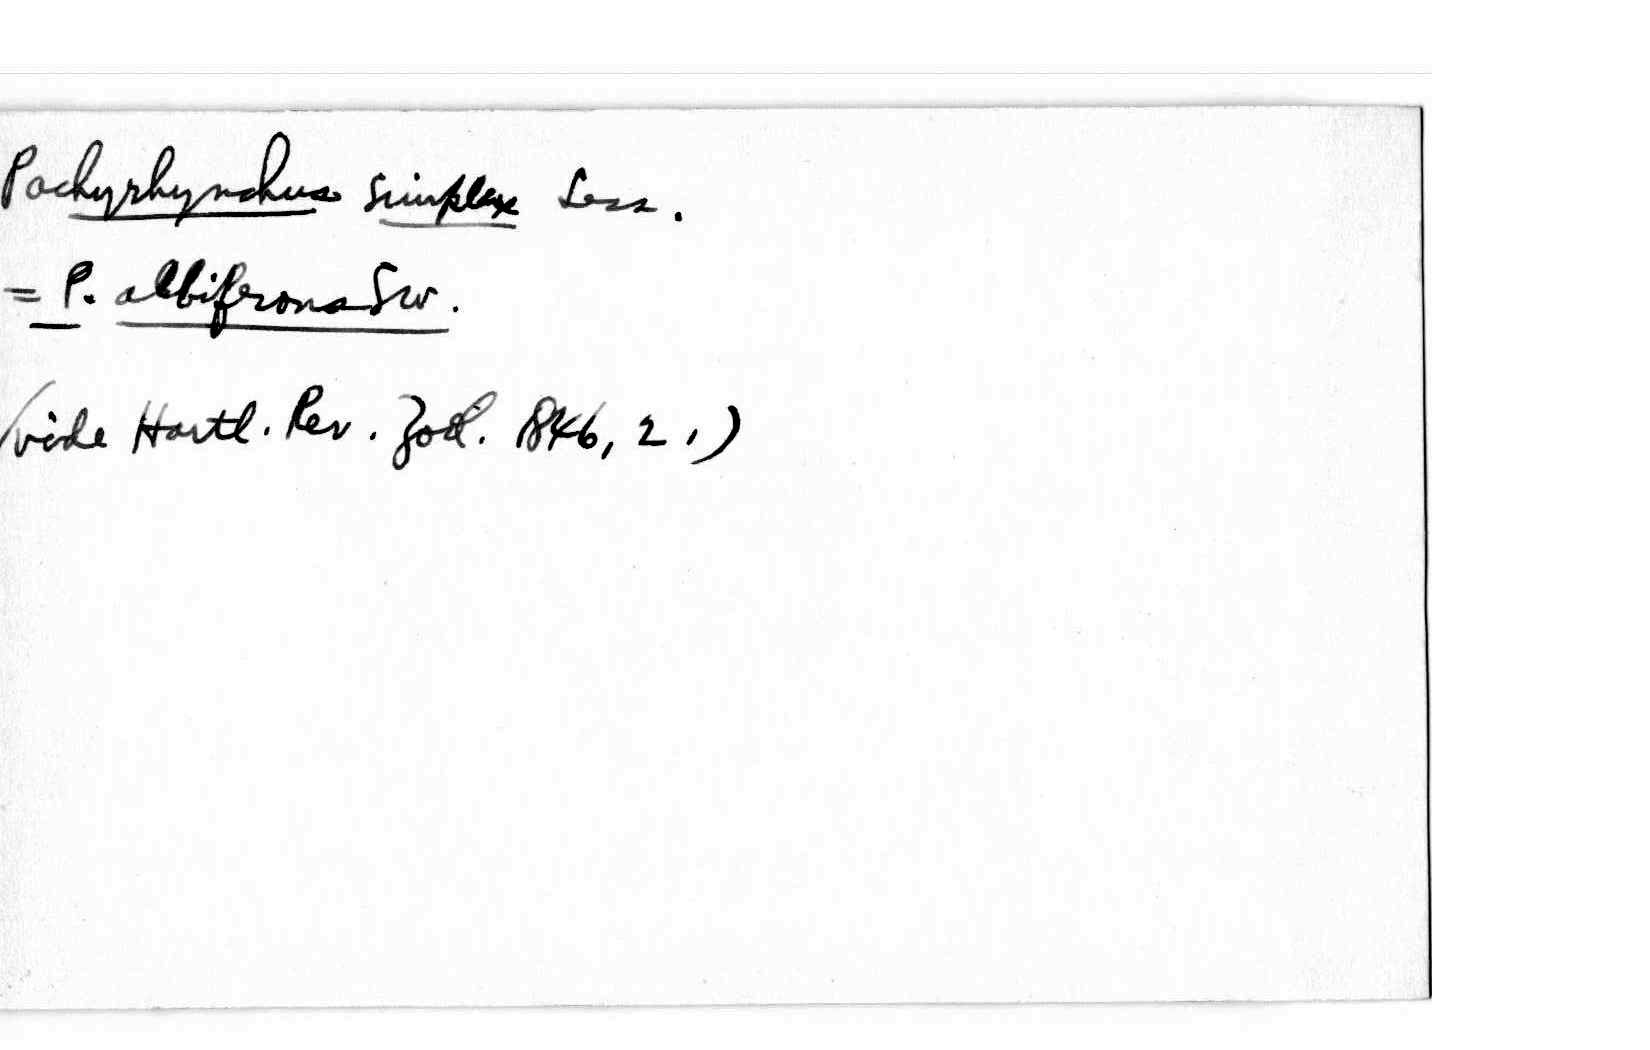 Pachyrhynchus simplex Less.
= P. albifrons Sw.
(vide Hartl. Rev. Zool. 1846, 2.)